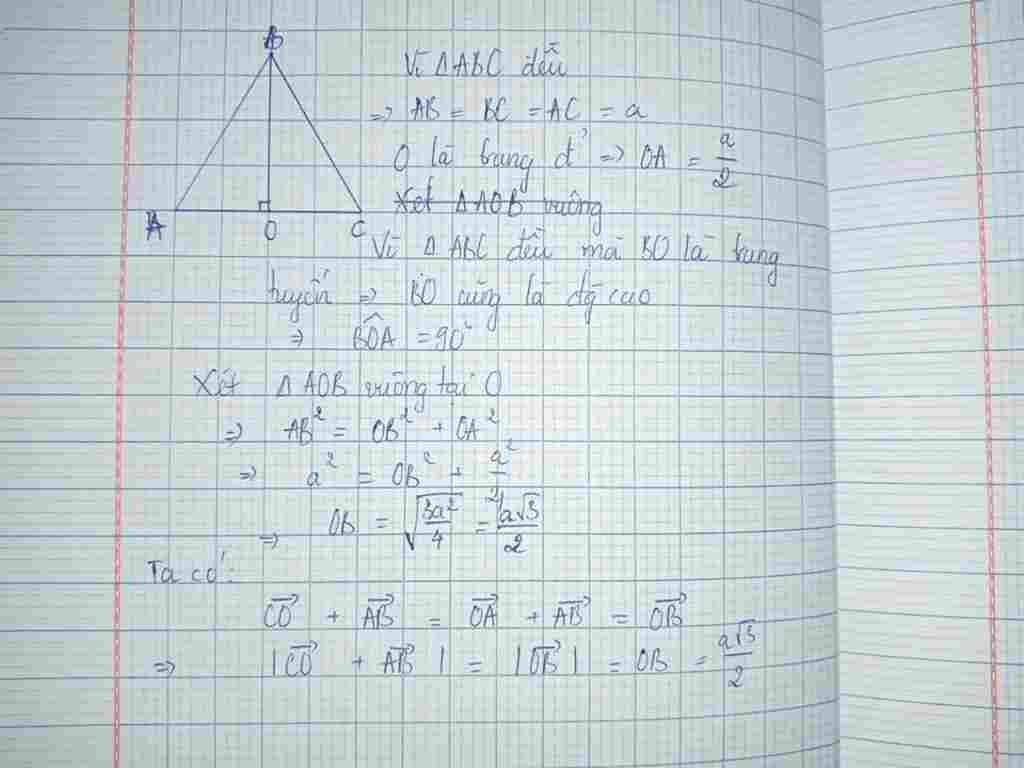 B
A
O
C
Vì ΔABC đều
=> AB = BC = AC = a
O là trung đ' => OA = a/2
Xét ΔAOB vuông
Vì ΔABC đều mà BO là trung
tuyến => BO cũng là đg cao
=> BÔA = 90°
Xét ΔAOB vuông tại O
=> AB² = OB² + OA²
=> a² = OB² + a²/4
=> OB = √(3a²/4) = a√3/2
Ta có:
CO⃗ + AB⃗ = OA⃗ + AB⃗ = OB⃗
=> |CO⃗ + AB⃗| = |OB⃗| = OB = a√3/2